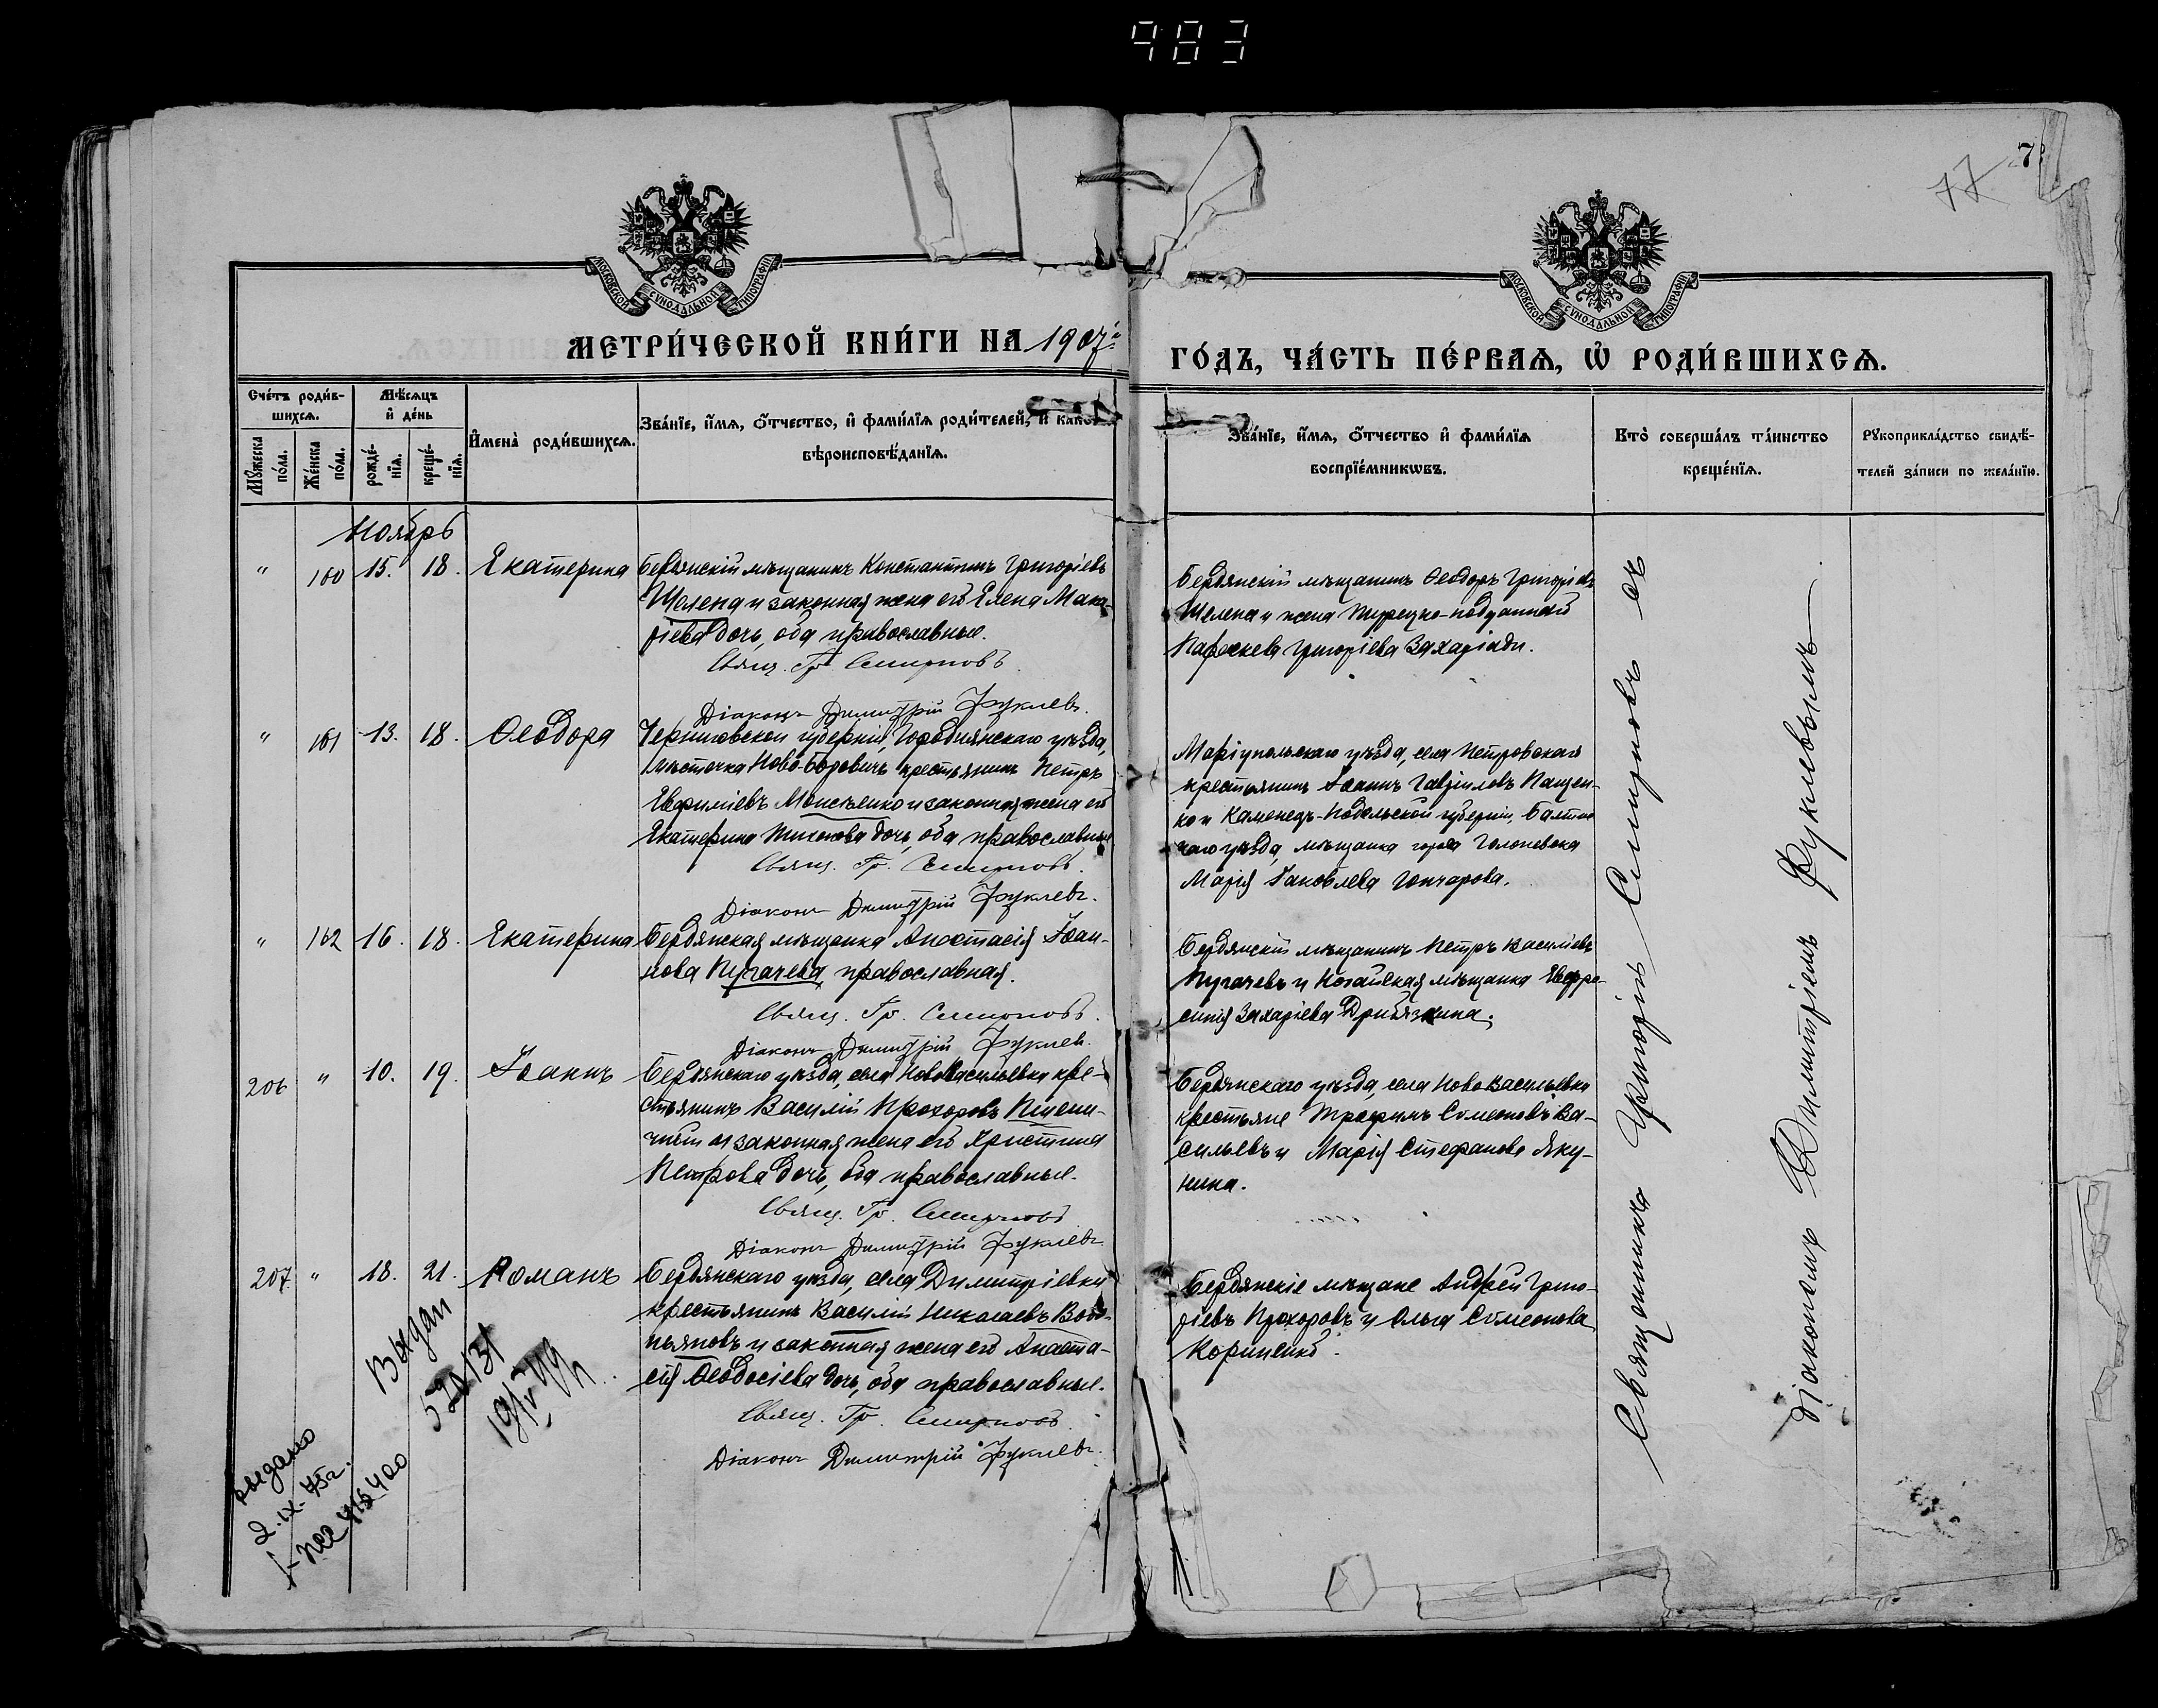 983
77
7
МОСКОВСКОЙ СУНОДАЛЬНОЙ ТИПОГРАФІИ
МОСКОВСКОЙ СУНОДАЛЬНОЙ ТИПОГРАФІИ
МЕТРИ́ЧЕСКОЙ КНИ́ГИ НА 1907й
ГО́ДЪ, ЧА́СТЬ ПЕ́РВАѦ, Ѡ҆ РОДИ́ВШИХСѦ.
Сче́тъ роди́в-
шихсѧ.
Мѣ́сѧцъ
и҆ де́нь
Мꙋ́жеска
по́ла.
Же́нска
по́ла.
рожде́-
нїѧ.
креще́-
нїѧ.
И҆мена̀ роди́вшихсѧ.
Зва́нїе, и҆́мѧ, ѻ҆́тчество, и҆ фами́лїѧ роди́телей, и҆ како́
вѣроисповѣ́данїѧ.
Зва́нїе, и҆́мѧ, ѻ҆́тчество и҆ фами́лїѧ
воспрїе́мникѡвъ.
Кто̀ соверша́лъ та́инство
креще́нїѧ.
Рꙋкоприкла́дство свидѣ́-
телей за́писи по жела́нїю.
Ноябрь
" 160 15. 18. Екатерина
Бердянскій мѣщанинъ Константинъ Григоріевъ
Шелепа и законная жена его Елена Мака-
ріева дочь, оба православные.
Свящ. Гр. Смирновъ.
Діаконъ Димитрій Фуклевъ.
Бердянскій мѣщанинъ Ѳеодоръ Григоріевъ
Шелепа и жена Турецко-подданнаго
Параскева Григоріева Захаріади.
" 161 13. 18. Ѳеодора
Черниговской губерніи, Городнянскаго уѣзда,
мѣстечка Ново-Боровичъ крестьянинъ Петръ
Евфиміевъ Моисѣенко и законная жена его
Екатерина Тихонова дочь, оба православные
Свящ. Гр. Смирновъ.
Діаконъ Димитрій Фуклевъ.
Маріупольскаго уѣзда, села Петровскаго
крестьянинъ Іоаннъ Гавріиловъ Пащен-
ко и Каменецъ-Подольской губерніи, Балт
каго уѣзда, мѣщанка города
Марія Іаковлева Гончарова.
" 162 16. 18. Екатерина
Бердянская мѣщанка Анастасія Іоан-
нова Пугачева, православная.
Свящ. Гр. Смирновъ.
Діаконъ Димитрій Фуклев.
Бердянскій мѣщанинъ Петръ Василіевъ
Пугачевъ и Ногайская мѣщанка Евфро-
синія Захаріева Дрибязкина.
206 " 10. 19. Іоаннъ
Бердянскаго уѣзда, села Нововасильевки кре-
стьянинъ Василій Прохоровъ Пшени-
чный и законная жена его Христина
Петрова дочь, оба православные.
Свящ. Гр. Смирновъ
Діаконъ Димитрій Фуклевъ.
Бердянскаго уѣзда, села Нововасильевки
крестьяне Трофимъ Симеоновъ Ва-
сильевъ и Марія Стефанова Яку-
нина.
207. " 18. 21. Романъ
Бердянскаго уѣзда, села Димитріевки
крестьянинъ Василій Николаевъ Водо-
пьяновъ и законная жена его Анаста-
сія Ѳеодосіева дочь, оба православные.
Свящ. Гр. Смирновъ.
Діаконъ Димитрій Фуклевъ.
Бердянскіе мѣщане Андрей Григо-
ріевъ Прохоровъ и Ольга Симеонова
Кориненко.
Священникъ Григорій Смирновъ съ
діакономъ Димитріемъ Фуклевымъ
Выдан
выдано
2.IX.45г.